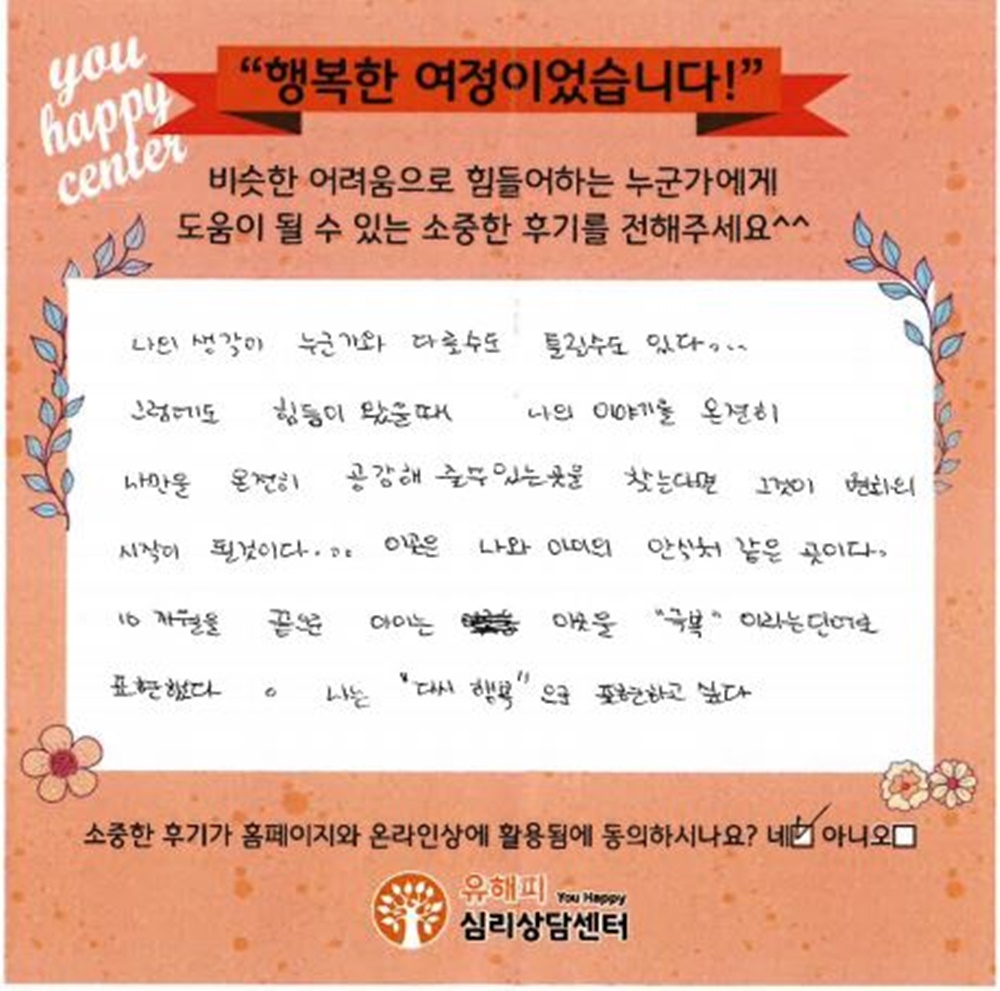 you
happy
center
“행복한 여정이었습니다!”
비슷한 어려움으로 힘들어하는 누군가에게
도움이 될 수 있는 소중한 후기를 전해주세요^^
나의 생각이 누군가와 다를수도 틀릴수도 있다...
그럼에도 힘듦이 왔을때 나의 이야기를 온전히
나만을 온전히 공감해 줄수있는곳을 찾는다면 그것이 변화의
시작이 될것이다... 이곳은 나와 아이의 안식처 같은 곳이다.
10 개월을 끝낸 아이는 이곳을 "극복" 이라는단어로
표현했다. 나는 "다시 행복"으로 표현하고 싶다
소중한 후기가 홈페이지와 온라인상에 활용됨에 동의하시나요? 네☑ 아니오□
유해피 You Happy
심리상담센터